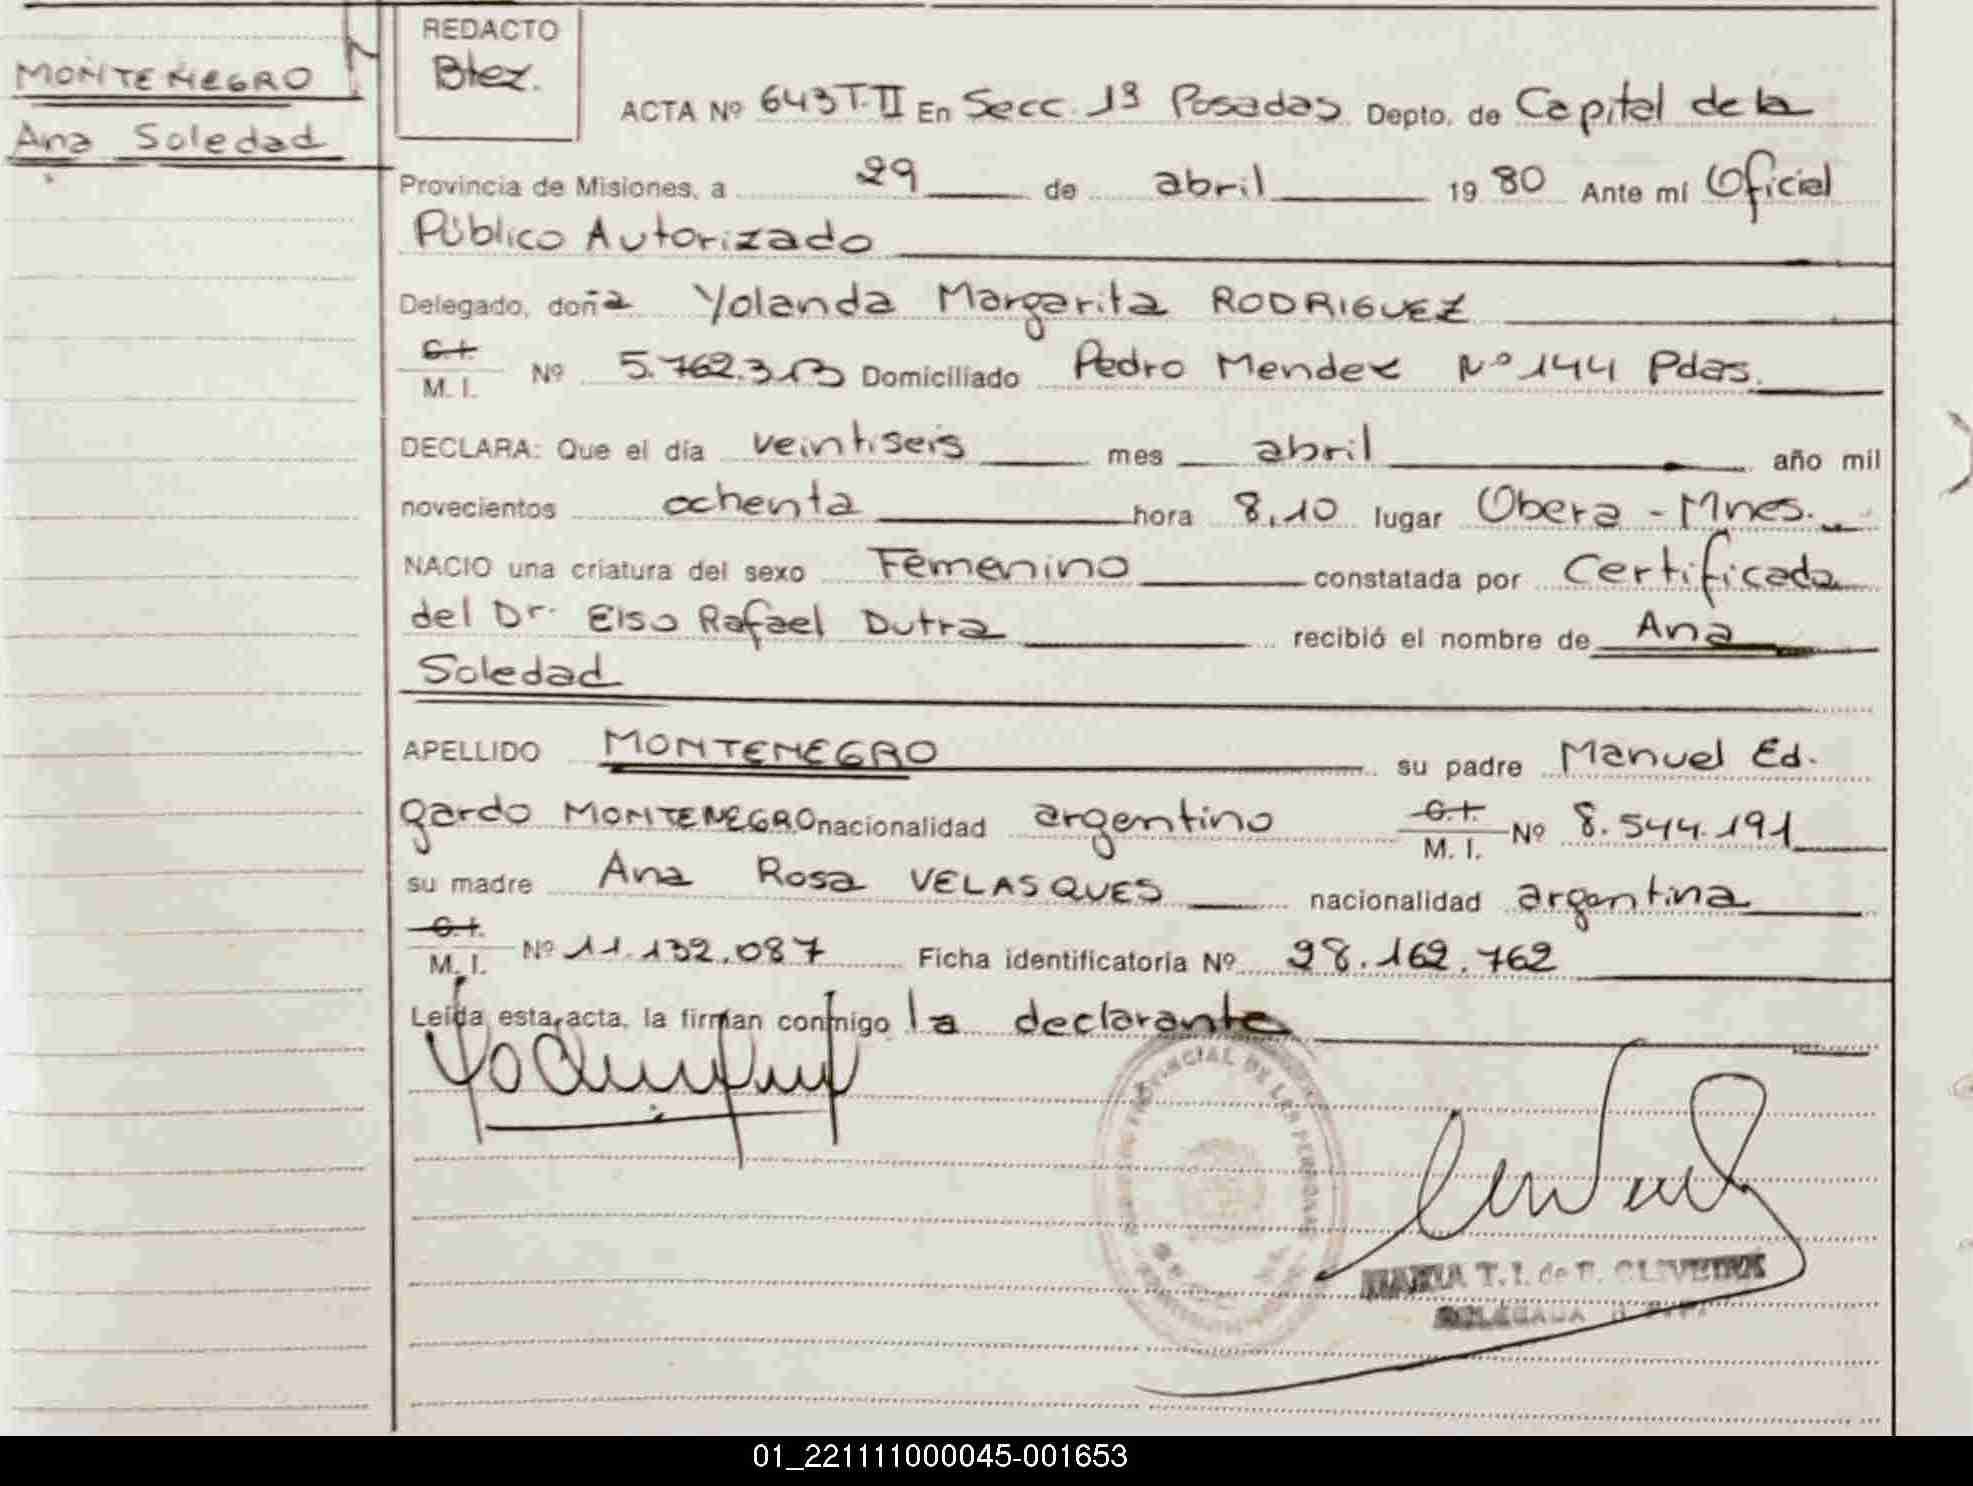 MONTENEGRO
Ana Soledad
REDACTO
Btez.
ACTA Nº 643 T. II En Secc. 1ª Posadas Depto. de Capital de la
Provincia de Misiones, a 29 de abril 1980 Ante mi Oficial
Público Autorizado
Delegado, doña Yolanda Margarita RODRIGUEZ
C.I.
M. I. Nº 5.762.313 Domiciliado Pedro Mendez Nº 144 Pdas.
DECLARA: Que el día veintiseis mes abril año mil
novecientos ochenta hora 8,10 lugar Obera - Mnes.
NACIO una criatura del sexo Femenino constatada por Certificada
del Dr. Elso Rafael Dutra recibió el nombre de Ana
Soledad
APELLIDO MONTENEGRO su padre Manuel Ed.
gardo MONTENEGRO nacionalidad argentino C.I. M. I. Nº 8.544.191
su madre Ana Rosa VELASQUES nacionalidad argentina
C.I.
M. I. Nº 11.132.087 Ficha identificatoria Nº 28.162.762
Leída esta acta, la firman conmigo la declarante
PROVINCIAL DE LAS PERSONAS
MARIA T. I. de B. OLIVEIRA
DELEGADA
01_221111000045-001653